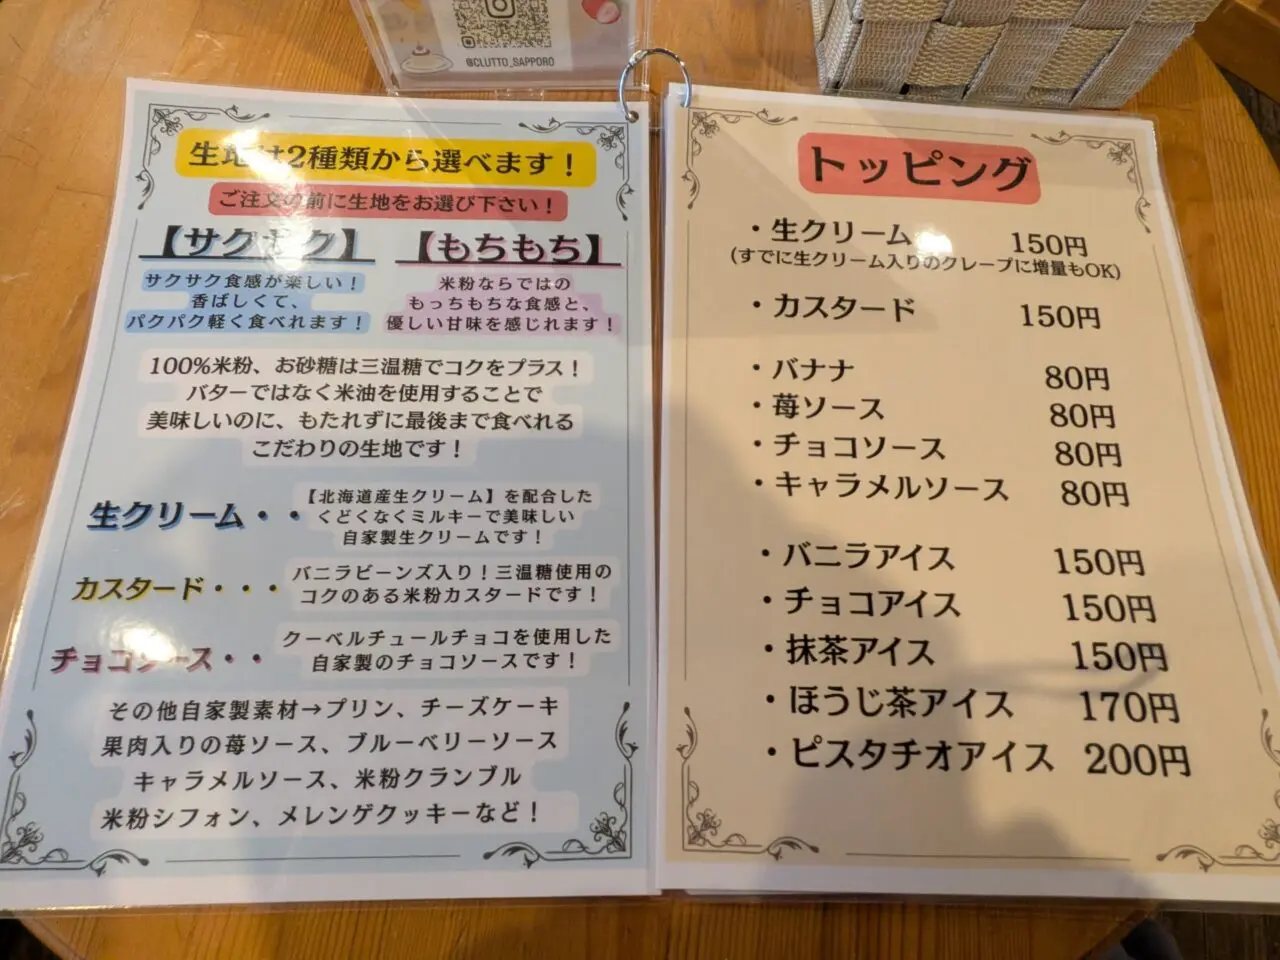 @CLUTTO_SAPPORO
生地は2種類から選べます！
ご注文の前に生地をお選び下さい！
【サクサク】
サクサク食感が楽しい！
香ばしくて、
パクパク軽く食べれます！
【もちもち】
米粉ならではの
もっちもちな食感と、
優しい甘味を感じれます！
100%米粉、お砂糖は三温糖でコクをプラス！
バターではなく米油を使用することで
美味しいのに、もたれずに最後まで食べれる
こだわりの生地です！
生クリーム・・
【北海道産生クリーム】を配合した
くどくなくミルキーで美味しい
自家製生クリームです！
カスタード・・・
バニラビーンズ入り！三温糖使用の
コクのある米粉カスタードです！
チョコソース・・
クーベルチュールチョコを使用した
自家製のチョコソースです！
その他自家製素材→プリン、チーズケーキ
果肉入りの苺ソース、ブルーベリーソース
キャラメルソース、米粉クランブル
米粉シフォン、メレンゲクッキーなど！
トッピング
・生クリーム 150円
(すでに生クリーム入りのクレープに増量もOK)
・カスタード 150円
・バナナ 80円
・苺ソース 80円
・チョコソース 80円
・キャラメルソース 80円
・バニラアイス 150円
・チョコアイス 150円
・抹茶アイス 150円
・ほうじ茶アイス 170円
・ピスタチオアイス 200円